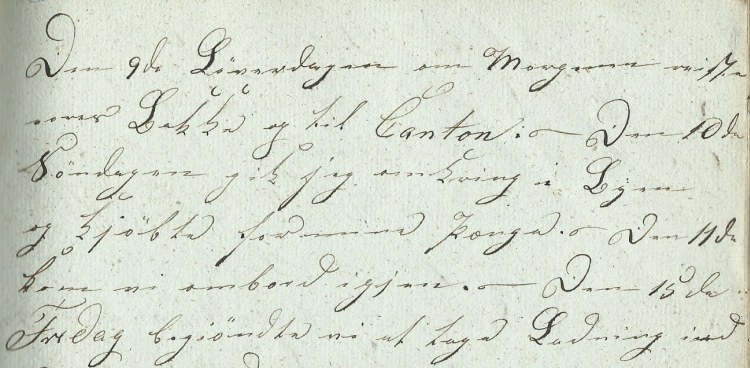 Den 9de Löverdagen om Morgenen reiste
vores Bakke og til Canton :~ Den 10de
Söndagen gik jeg omkring i Byen
og kjöbte for mine Pænge .~ Den 11de
kom vi ombord igjen .~ Den 15de
Fredag begiöndte vi at tage Ladning ind